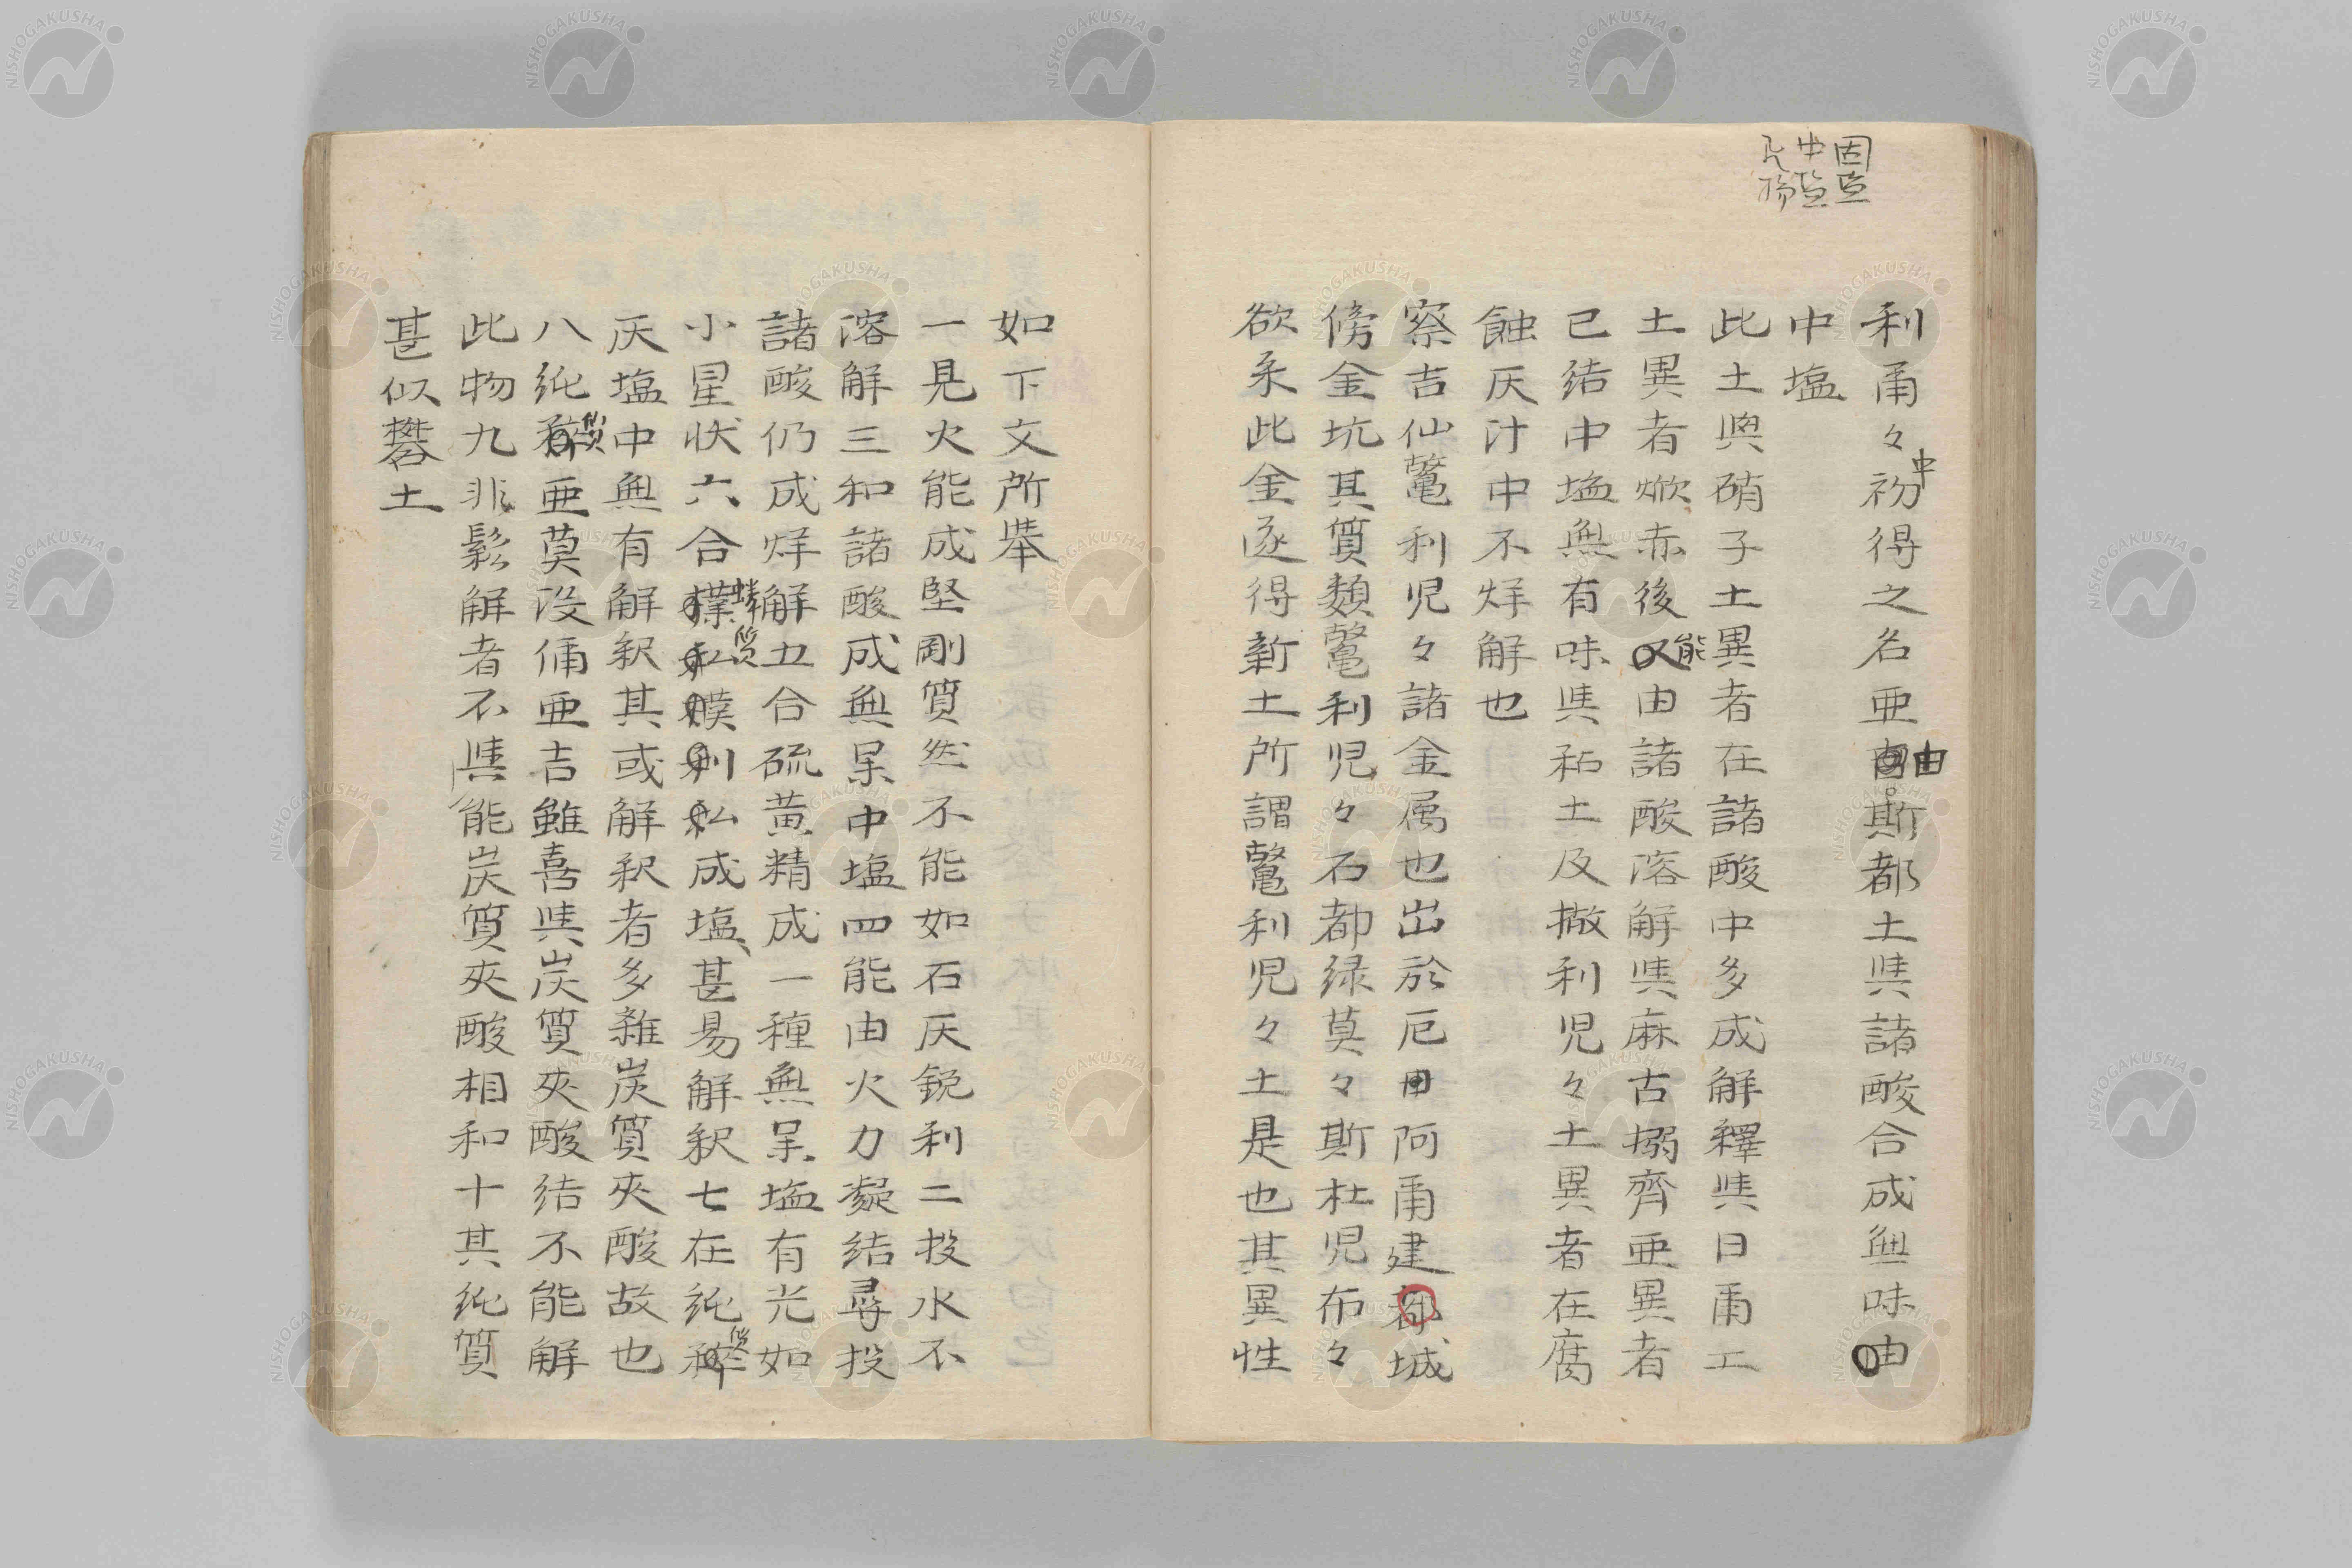 固塩
中塩
利甬々初中得之名亜由斯都土与諸酸合成無味由
中塩
此土與硝子土異者在諸酸中多成解釋与日甬工
土異者焮赤後能由諸酸溶解与麻古搦齊亜異者
已结中塩無有味与和土及撒利児々土異者在腐
蝕灰汁中不烊解也
察吉仙鼈利児々諸金属也出於厄甲阿甬建都城
傍金坑其質類鼈利児々石都緑莫々斯杜児布々
欲釆此金逐得新土所謂鼈利児々土是也其異性
如下文所举
一見火能成堅剛質然不能如石灰鋭利二投水不
溶解三和諸酸成無呆中塩四能由火力凝结尋投
諸酸仍成烊解五合硫黄精成一種無呈塩有光如
小星状六合燐質成塩甚易解釈七在純質
灰塩中無有解釈其或解釈者多雑炭質夾酸故也
八純質亜莫没俑亜吉雖喜与炭質夾酸结不能解
此物九非鬆解者不与能炭質夾酸相和十其純質
甚似礬土
NISHOGAKUSHA